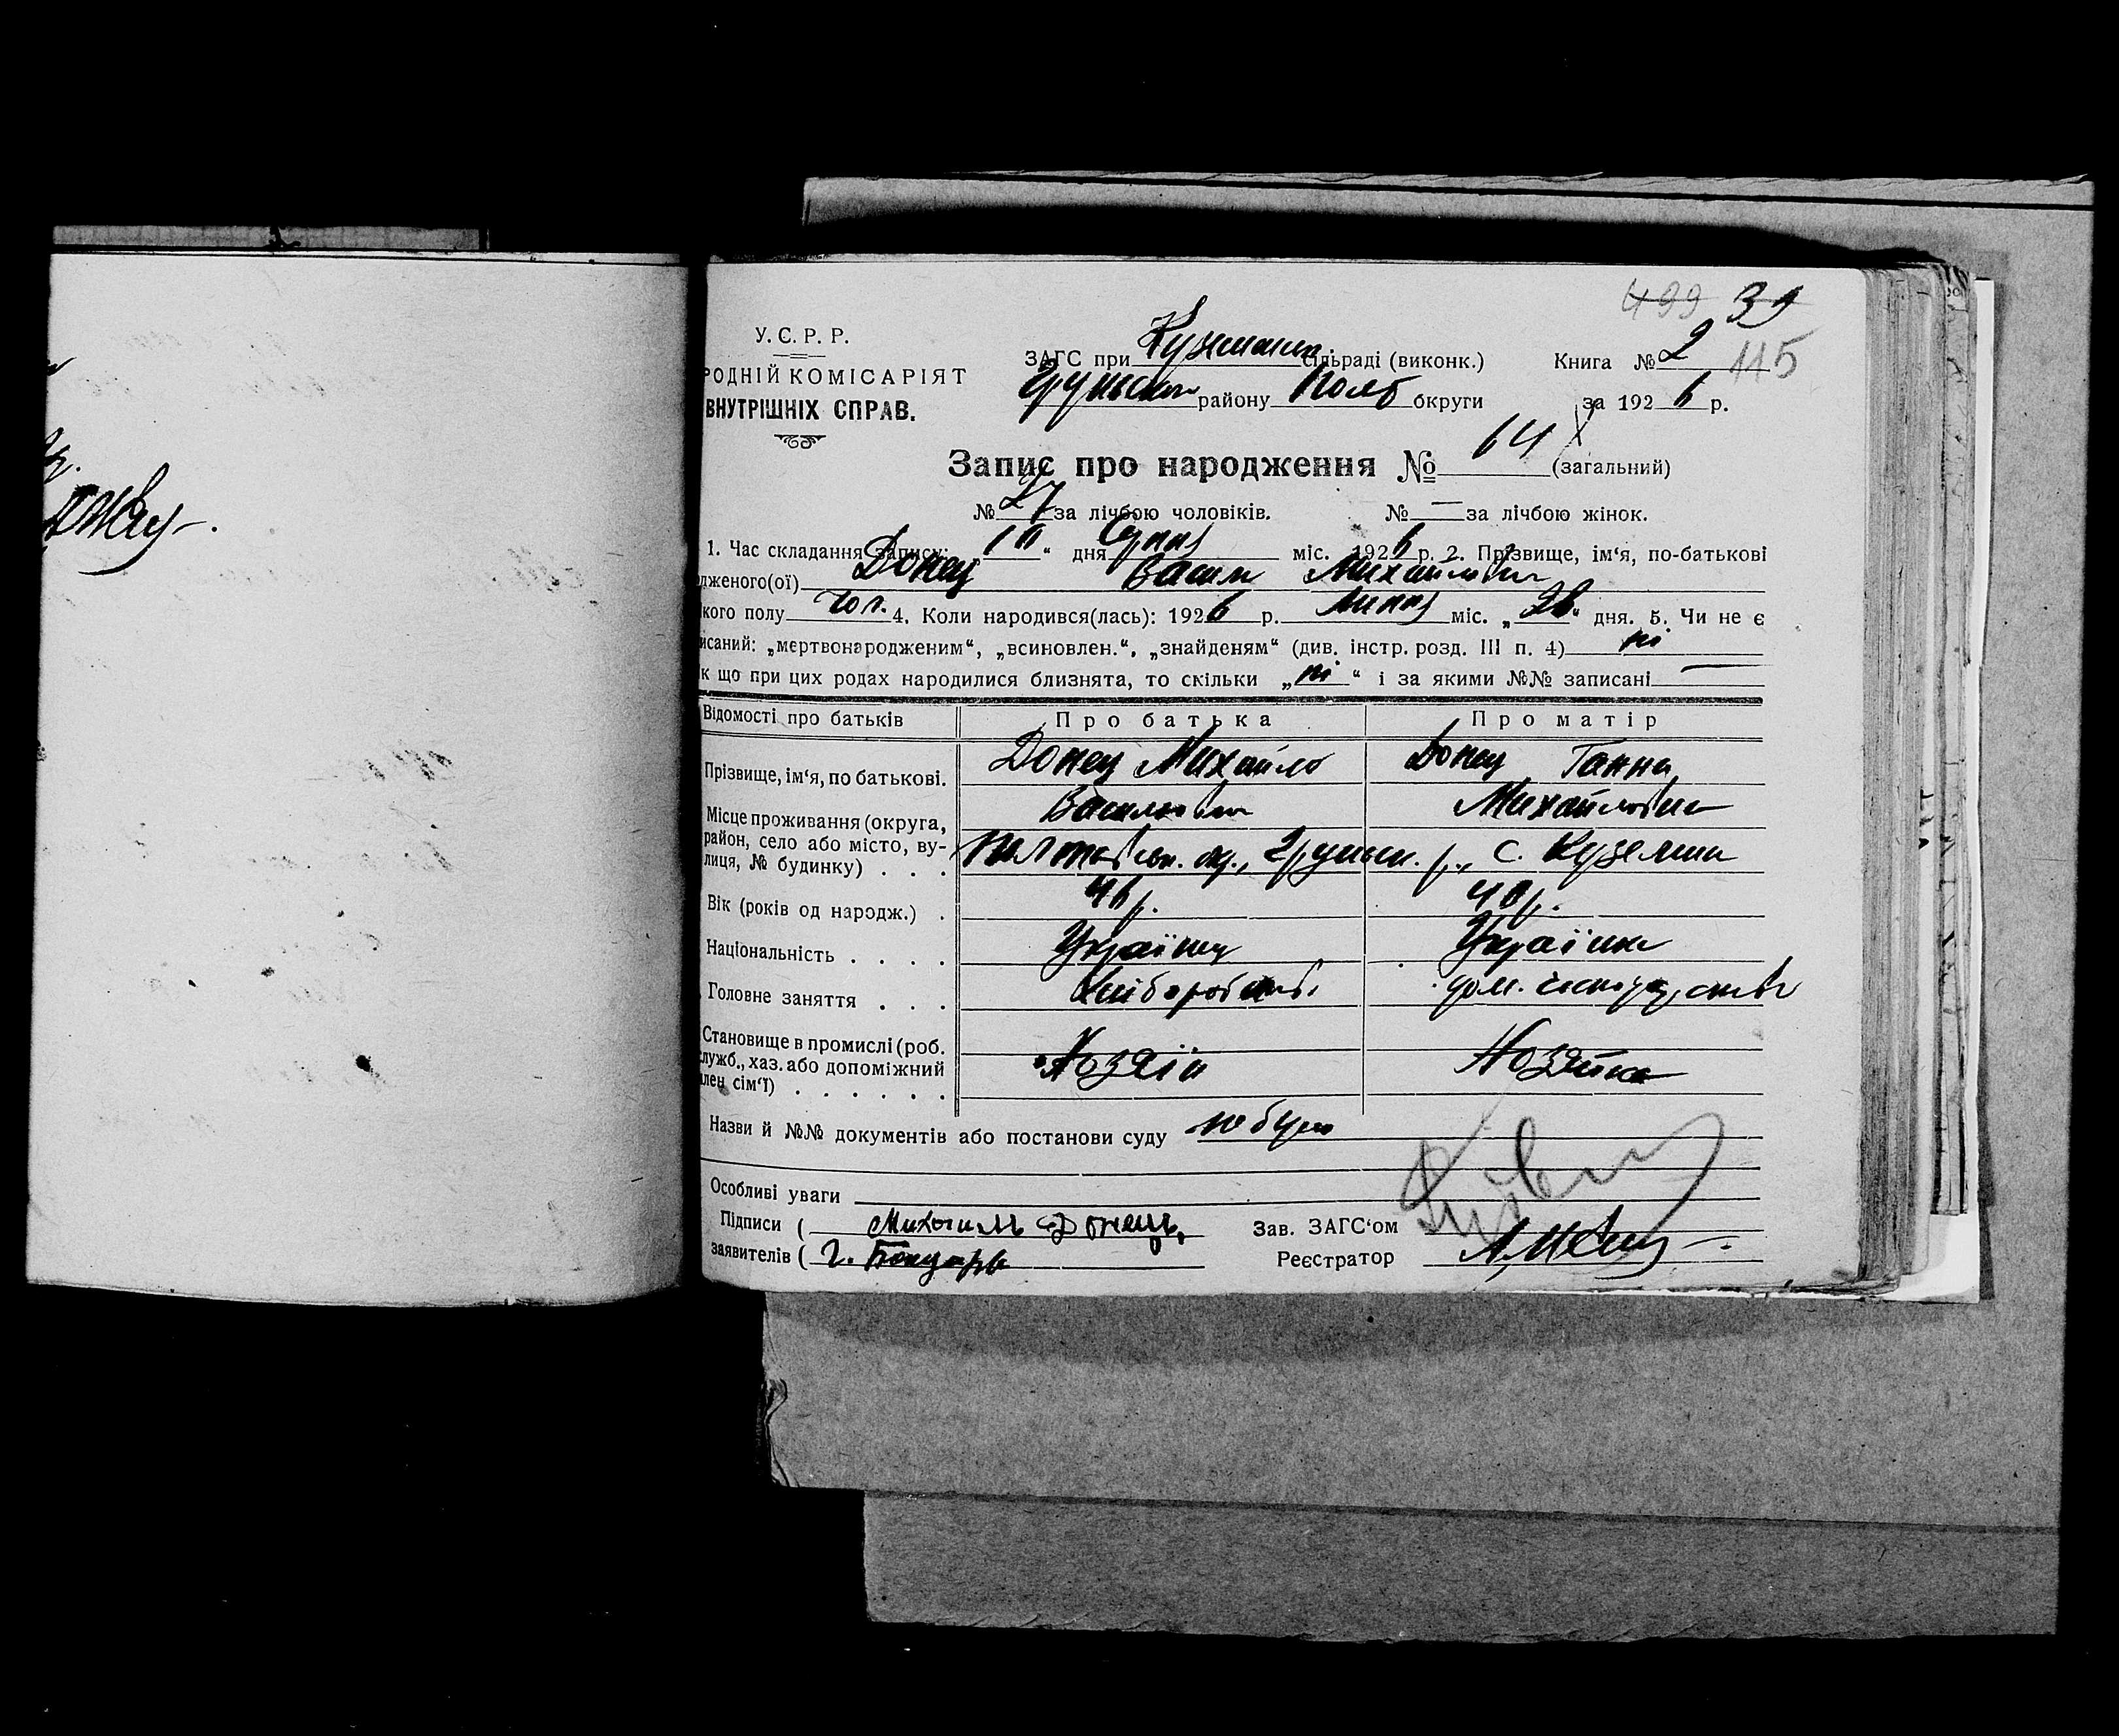 499 39
У. С. Р. Р.
РОДНІЙ КОМІСАРІЯТ
ВНУТРІШНІХ СПРАВ.
ЗАГС при Куземин. сільраді (виконк.)
Грунськ району Полт округи
Книга № 2 115
за 1926 р.
Запис про народження № 64 (загальний)
№ 27 за лічбою чоловіків. № — за лічбою жінок.
1. Час складання запису: „10“ дня Серпня міс. 1926 р. 2. Прізвище, ім‘я, по-батькові
дженого(ої) Донец Васил Михайлович
кого полу чол. 4. Коли народився(лась): 1926 р. Липня міс. „28“ дня. 5. Чи не є
исаний: „мертвонародженим“, „всиновлен.“, „знайденям“ (див. інстр. розд. III п. 4) ні
к що при цих родах народилися близнята, то скільки „ні“ і за якими №№ записані —
Відомості про батьків Про батька Про матір
Прізвище, ім‘я, по батькові. Донец Михайло Донец Ганна
Василович Михайловна
Місце проживання (округа,
район, село або місто, ву-
лиця, № будинку) . . . Полтавськ. окр., Грунськ. р., с. Куземин
Вік (років од народж.) . 46 р. 40 р.
Національність . . . . Українец Українка
Головне заняття . . . Хліборобств. дом. господарство
Становище в промислі (роб.
служб., хаз. або допоміжний
лен сім‘ї) . . . . . . Хозяїн Хозяйка
Назви й №№ документів або постанови суду не було
Особливі уваги
Підписи ( Михаилъ Донець, Зав. ЗАГС‘ом
заявителів ( Г. Бондарь Реєстратор